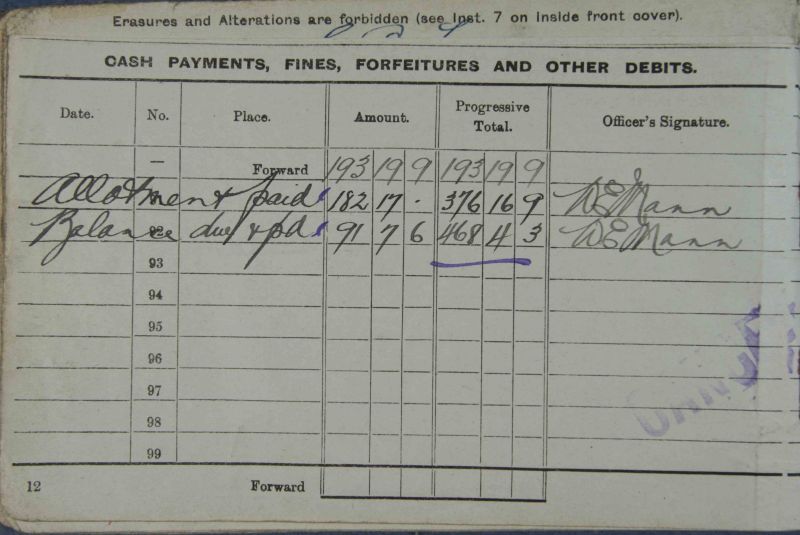 Erasures and Alterations are forbidden (see Inst. 7 on inside front cover).
CASH PAYMENTS, FINES, FORFEITURES AND OTHER DEBITS.
Date. No. Place. Amount. Progressive Total. Officer's Signature.
— Forward 193 19 9 193 19 9
Allotment paid 182 17 . 376 16 9 W E Mann
Balance due & pd 91 7 6 468 4 3 W E Mann
93
94
95
96
97
98
99
12 Forward